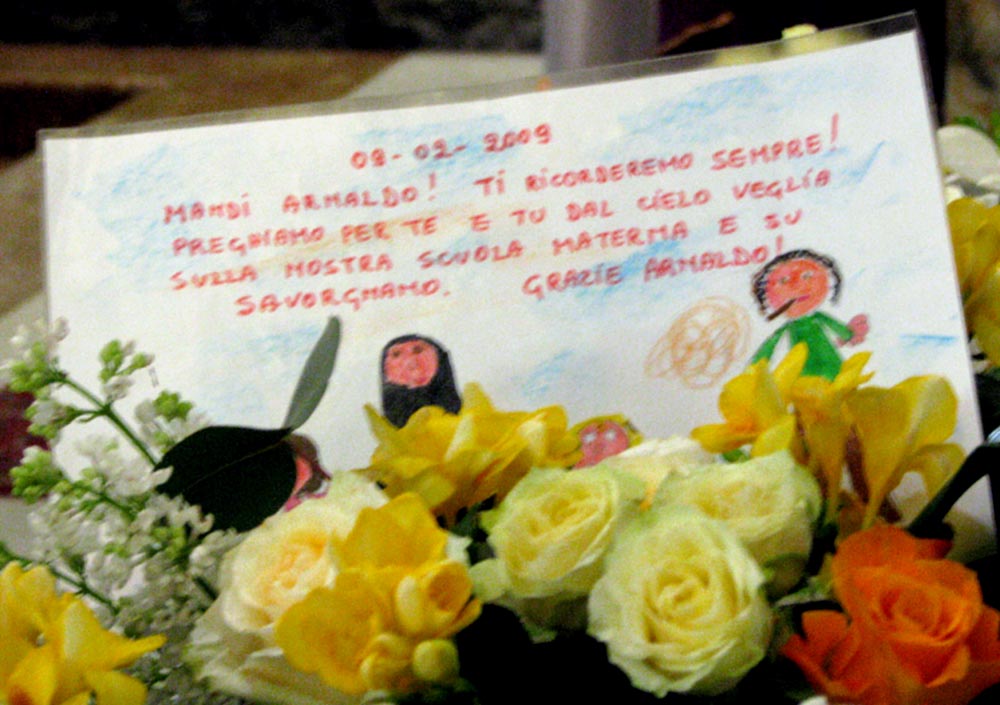 09-02-2009
MANDI ARNALDO! TI RICORDEREMO SEMPRE!
PREGHIAMO PER TE E TU DAL CIELO VEGLIA
SULLA NOSTRA SCUOLA MATERNA E SU
SAVORGNANO. GRAZIE ARNALDO!